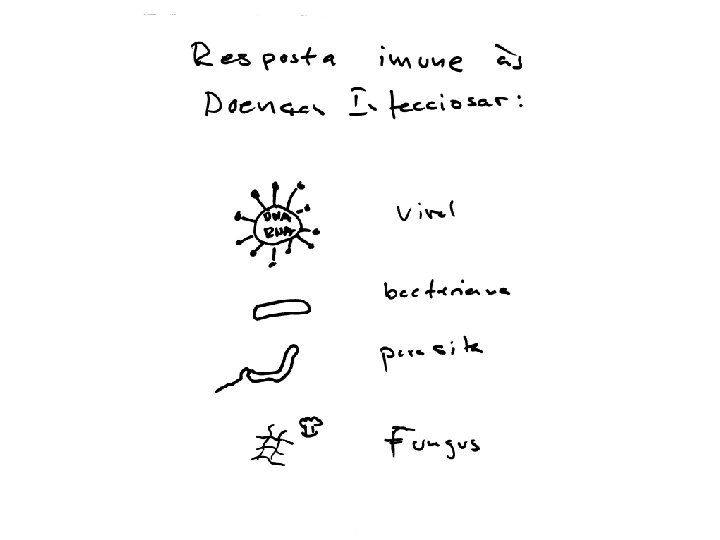 Resposta imune às
Doenças Infecciosas:
DNA
RNA
Viral
bacteriana
parasita
Fungus